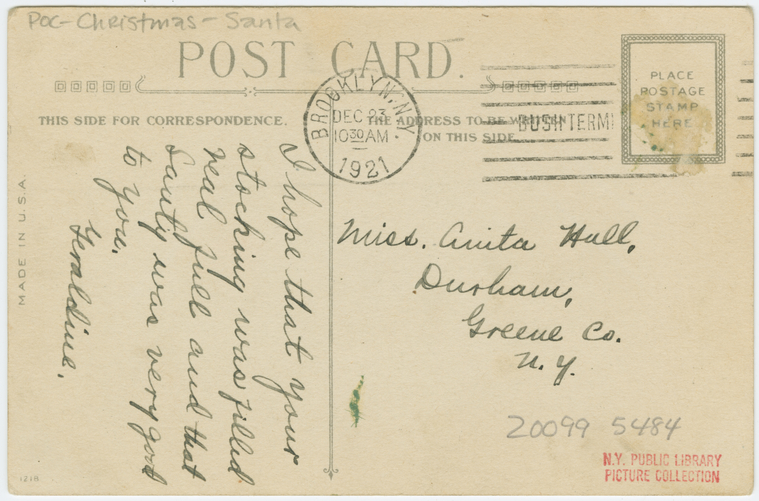 POC-Christmas-Santa
POST CARD.
THIS SIDE FOR CORRESPONDENCE.
THE ADDRESS TO BE WRITTEN
ON THIS SIDE
BROOKLYN, N.Y.
DEC 27
10 30 AM
1921
BUSH TERMI
PLACE
POSTAGE
STAMP
HERE
I hope that your
stocking was filled
real full and that
Santy was very good
to you.
Geraldine.
Miss. Anita Hull,
Durham,
Greene Co.
N.Y.
MADE IN U.S.A.
1218
20099 5484
N.Y. PUBLIC LIBRARY
PICTURE COLLECTION